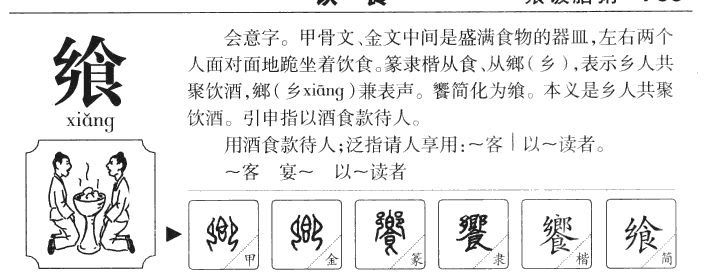 飨
xiǎng
会意字。甲骨文、金文中间是盛满食物的器皿,左右两个
人面对面地跪坐着饮食。篆隶楷从食、从鄉(乡),表示乡人共
聚饮酒,鄉(乡xiāng)兼表声。饗简化为飨。本义是乡人共聚
饮酒。引申指以酒食款待人。
用酒食款待人;泛指请人享用:~客|以~读者。
~客 宴~ 以~读者
甲 金 篆 饗 隶 饗 楷 飨 简